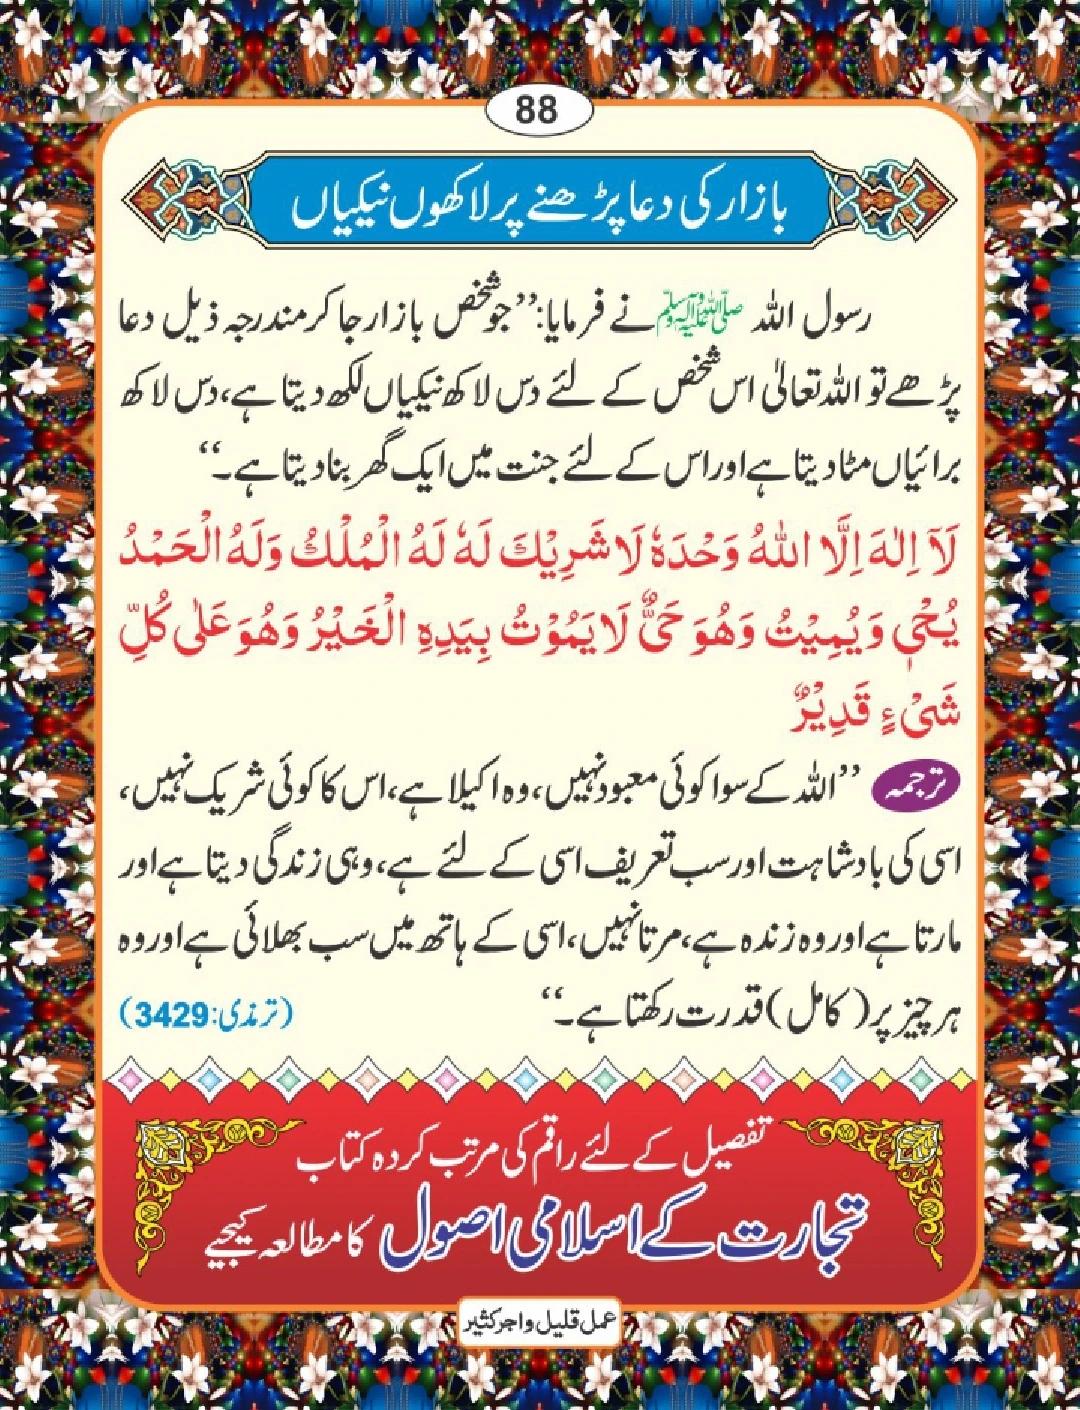 88
بازار کی دعا پڑھنے پر لاکھوں نیکیاں
رسول اللہ ﷺ نے فرمایا: ’’جو شخص بازار جا کر مندرجہ ذیل دعا
پڑھے تو اللہ تعالیٰ اس شخص کے لئے دس لاکھ نیکیاں لکھ دیتا ہے، دس لاکھ
برائیاں مٹا دیتا ہے اور اس کے لئے جنت میں ایک گھر بنا دیتا ہے۔‘‘
لَآ اِلٰهَ اِلَّا اللهُ وَحْدَهٗ لَا شَرِيْكَ لَهٗ لَهُ الْمُلْكُ وَلَهُ الْحَمْدُ
يُحْيٖ وَيُمِيْتُ وَهُوَ حَىٌّ لَا يَمُوْتُ بِيَدِهِ الْخَيْرُ وَهُوَ عَلٰى كُلِّ
شَىْءٍ قَدِيْرٌ
ترجمہ ’’اللہ کے سوا کوئی معبود نہیں، وہ اکیلا ہے، اس کا کوئی شریک نہیں،
اسی کی بادشاہت اور سب تعریف اسی کے لئے ہے، وہی زندگی دیتا ہے اور
مارتا ہے اور وہ زندہ ہے، مرتا نہیں، اسی کے ہاتھ میں سب بھلائی ہے اور وہ
ہر چیز پر (کامل) قدرت رکھتا ہے۔‘‘ (ترمذی: 3429)
تفصیل کے لئے راقم کی مرتب کردہ کتاب
تجارت کے اسلامی اصول کا مطالعہ کیجیے
عمل قلیل واجر کثیر